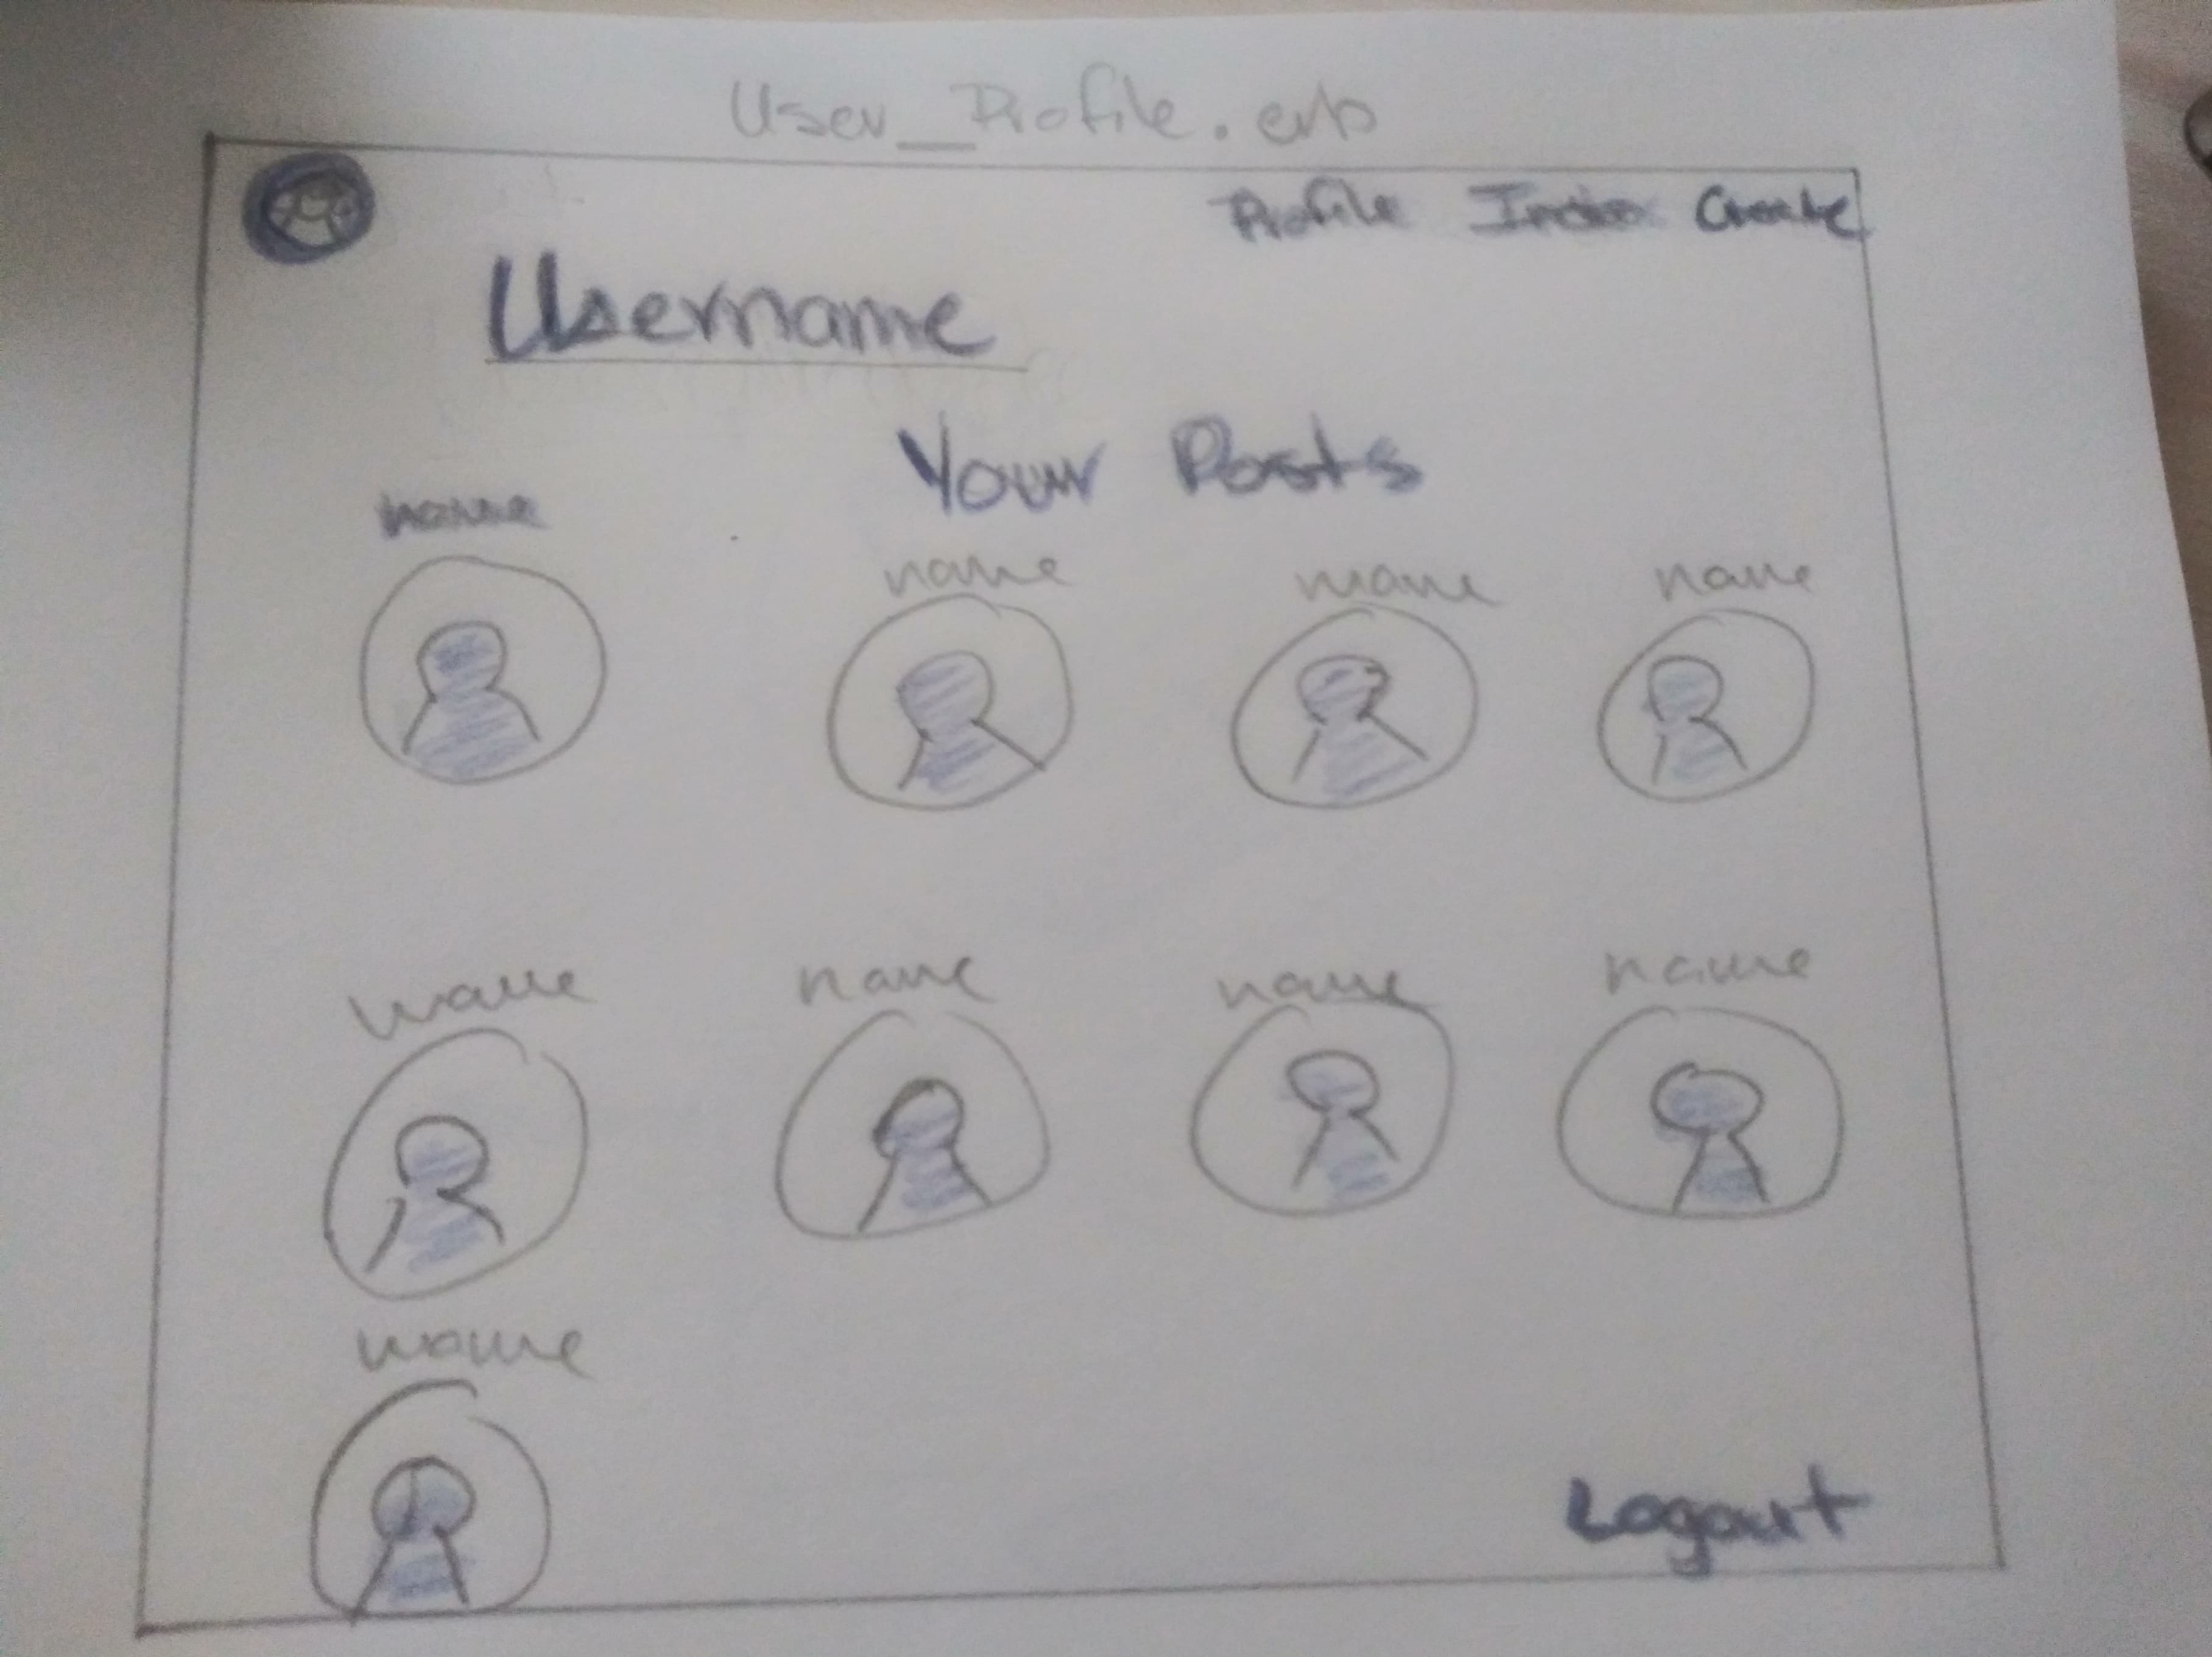 User_Profile.erb
Profile Index Create
Username
Your Posts
name
name name name
name name name name
name
Logout